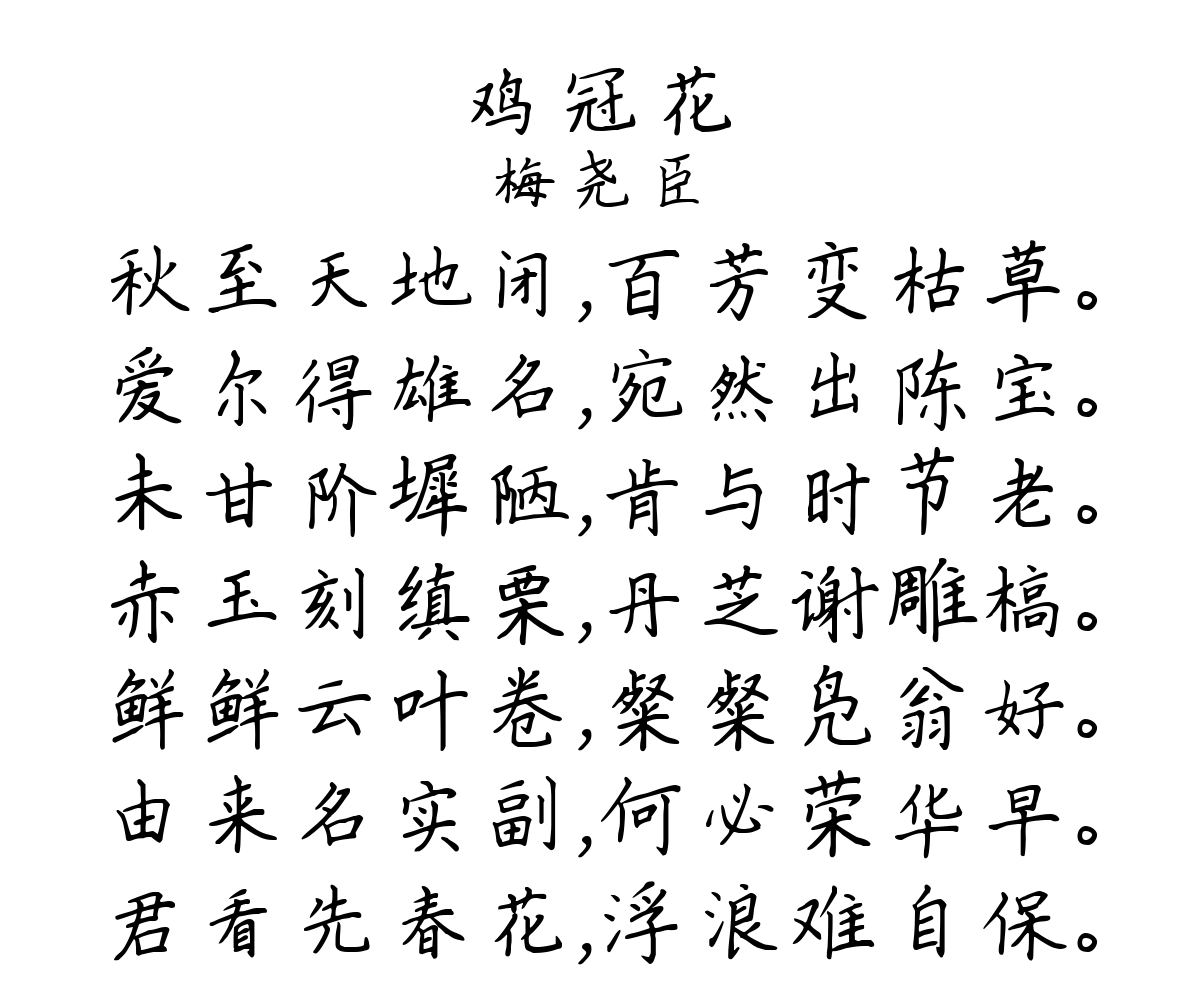 鸡冠花
梅尧臣
秋至天地闭,百芳变枯草。
爱尔得雄名,宛然出陈宝。
未甘阶墀陋,肯与时节老。
赤玉刻缜栗,丹芝谢雕槁。
鲜鲜云叶卷,粲粲凫翁好。
由来名实副,何必荣华早。
君看先春花,浮浪难自保。